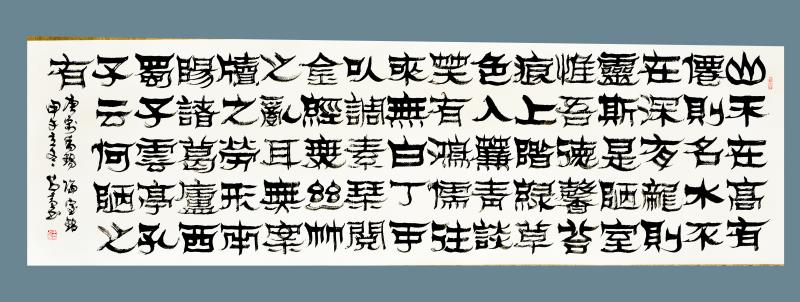 山不在高有
僊則名水不
在深有龍則
靈斯是陋室
惟吾德馨苔
痕上階綠草
色入簾青談
笑有鴻儒往
來無白丁可
以調素琴閱
金經無絲竹
之亂耳無案
牘之勞形南
陽諸葛廬西
蜀子雲亭孔
子云何陋之
有
唐劉禹錫陋室銘
甲午